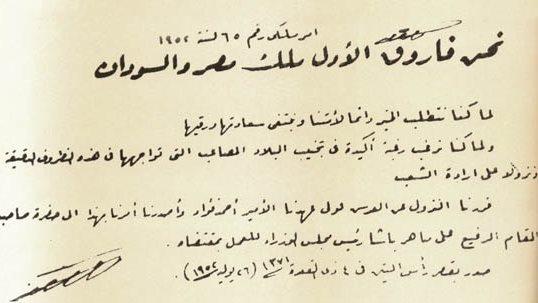 امر ملكى رقم ٦٥ لسنة ١٩٥٢
نحن فاروق الأول ملك مصر والسودان
لما كنا نتطلب الخير دائما لأمتنا ونبتغى سعادتها ورقيها
ولما كنا نرغب رغبة أكيدة فى تجنيب البلاد المصاعب التى تواجهها فى هذه الظروف الدقيقة
ونزولا على ارادة الشعب
قررنا النزول عن العرش لولى عهدنا الأمير أحمد فؤاد وأصدرنا أمرنا بهذا الى حضرة صاحب
المقام الرفيع على ماهر باشا رئيس مجلس الوزراء للعمل بمقتضاه .
صدر بقصر رأس التين فى ٤ ذى القعدة ١٣٧١ (٢٦ يوليه ١٩٥٢) .